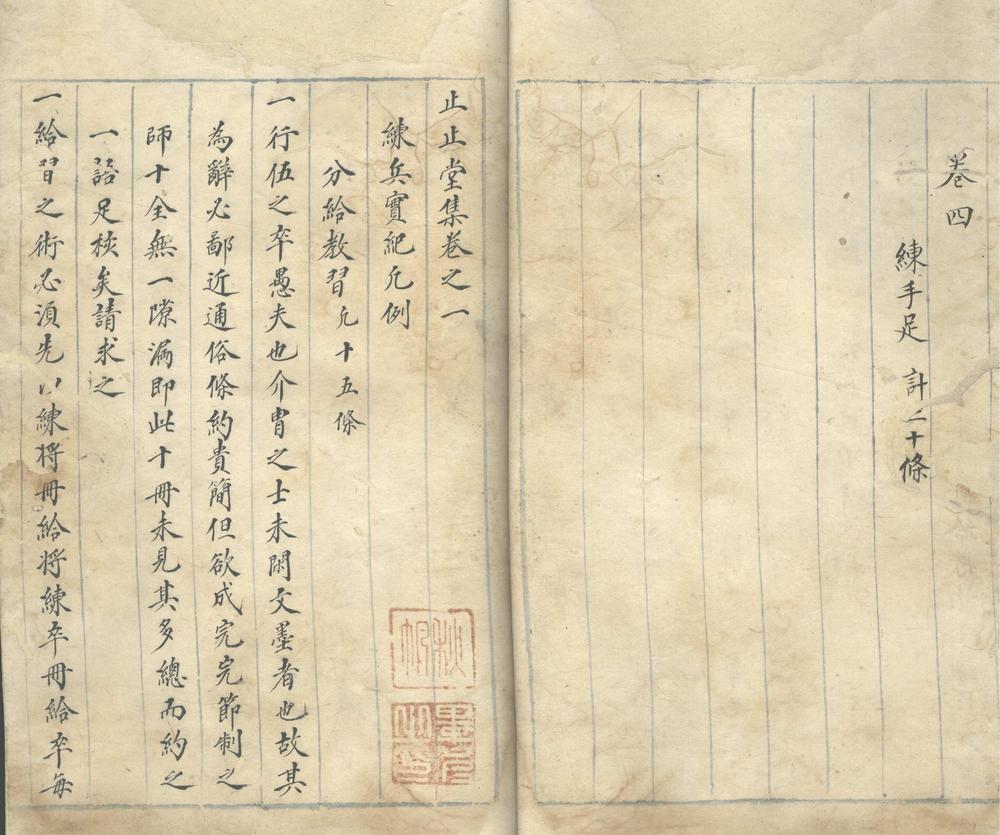 卷四
練手足 計二十條
止止堂集卷之一
練兵實紀凢例
分給教習凢十五條
一行伍之卒愚夫也介胄之士未閑文墨者也故其
為辭必鄙近通俗條約貴簡但欲成完完節制之
師十全無一隙漏即此十冊未見其多總而約之
一諮足矣請求之
一給習之術必湏先以練將冊給将練卒冊給卒每